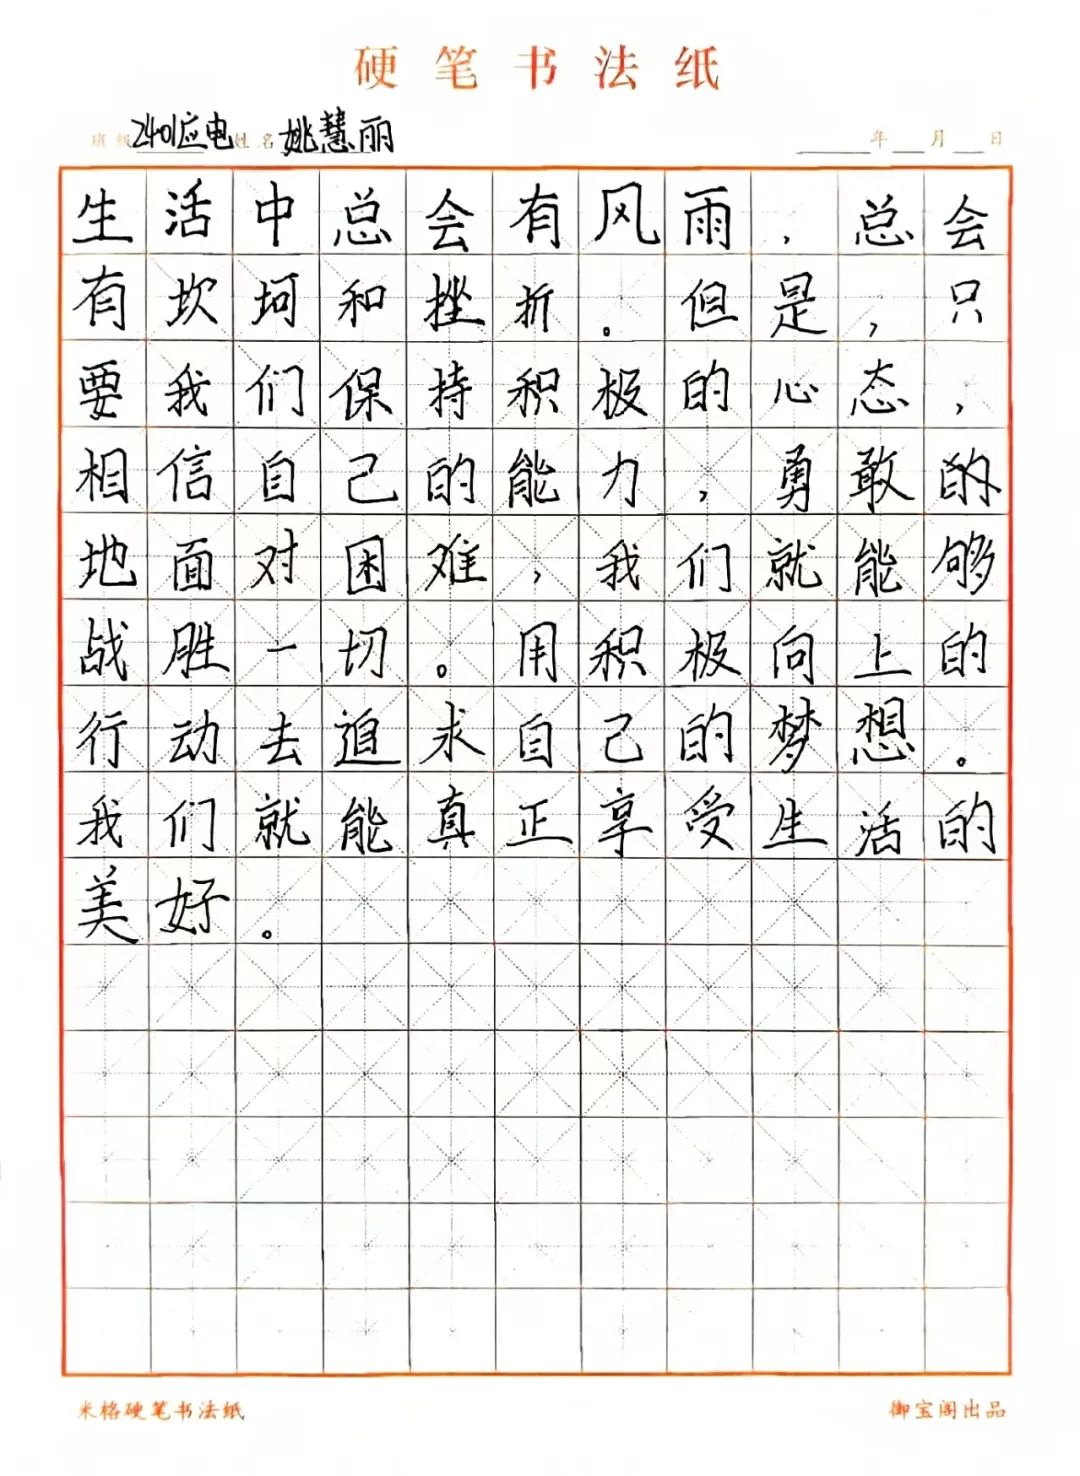 硬笔书法纸
班级 2401应电 姓名 姚慧丽 年 月 日
生活中总会有风雨，总会
有坎坷和挫折。但是，只
要我们保持积极的心态，
相信自己的能力，勇敢的
地面对困难，我们就能够
战胜一切。用积极向上的
行动去追求自己的梦想。
我们就能真正享受生活的
美好。
米格硬笔书法纸 御宝阁出品